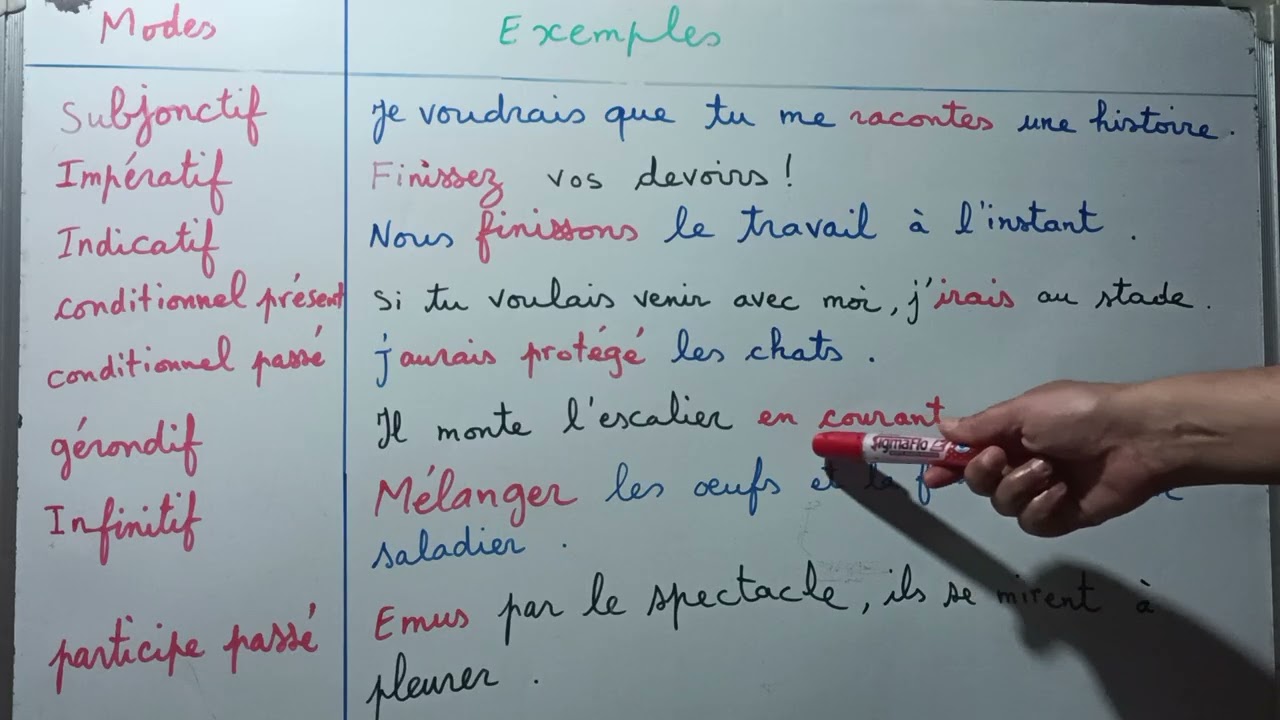 Modes Exemples
Subjonctif Je voudrais que tu me racontes une histoire.
Impératif Finissez vos devoirs !
Indicatif Nous finissons le travail à l'instant.
conditionnel présent Si tu voulais venir avec moi, j'irais au stade.
conditionnel passé j'aurais protégé les chats.
gérondif Il monte l'escalier en courant
SigmaFlo
Infinitif Mélanger les œufs et la
saladier.
participe passé Emus par le spectacle, ils se mirent à
pleurer.